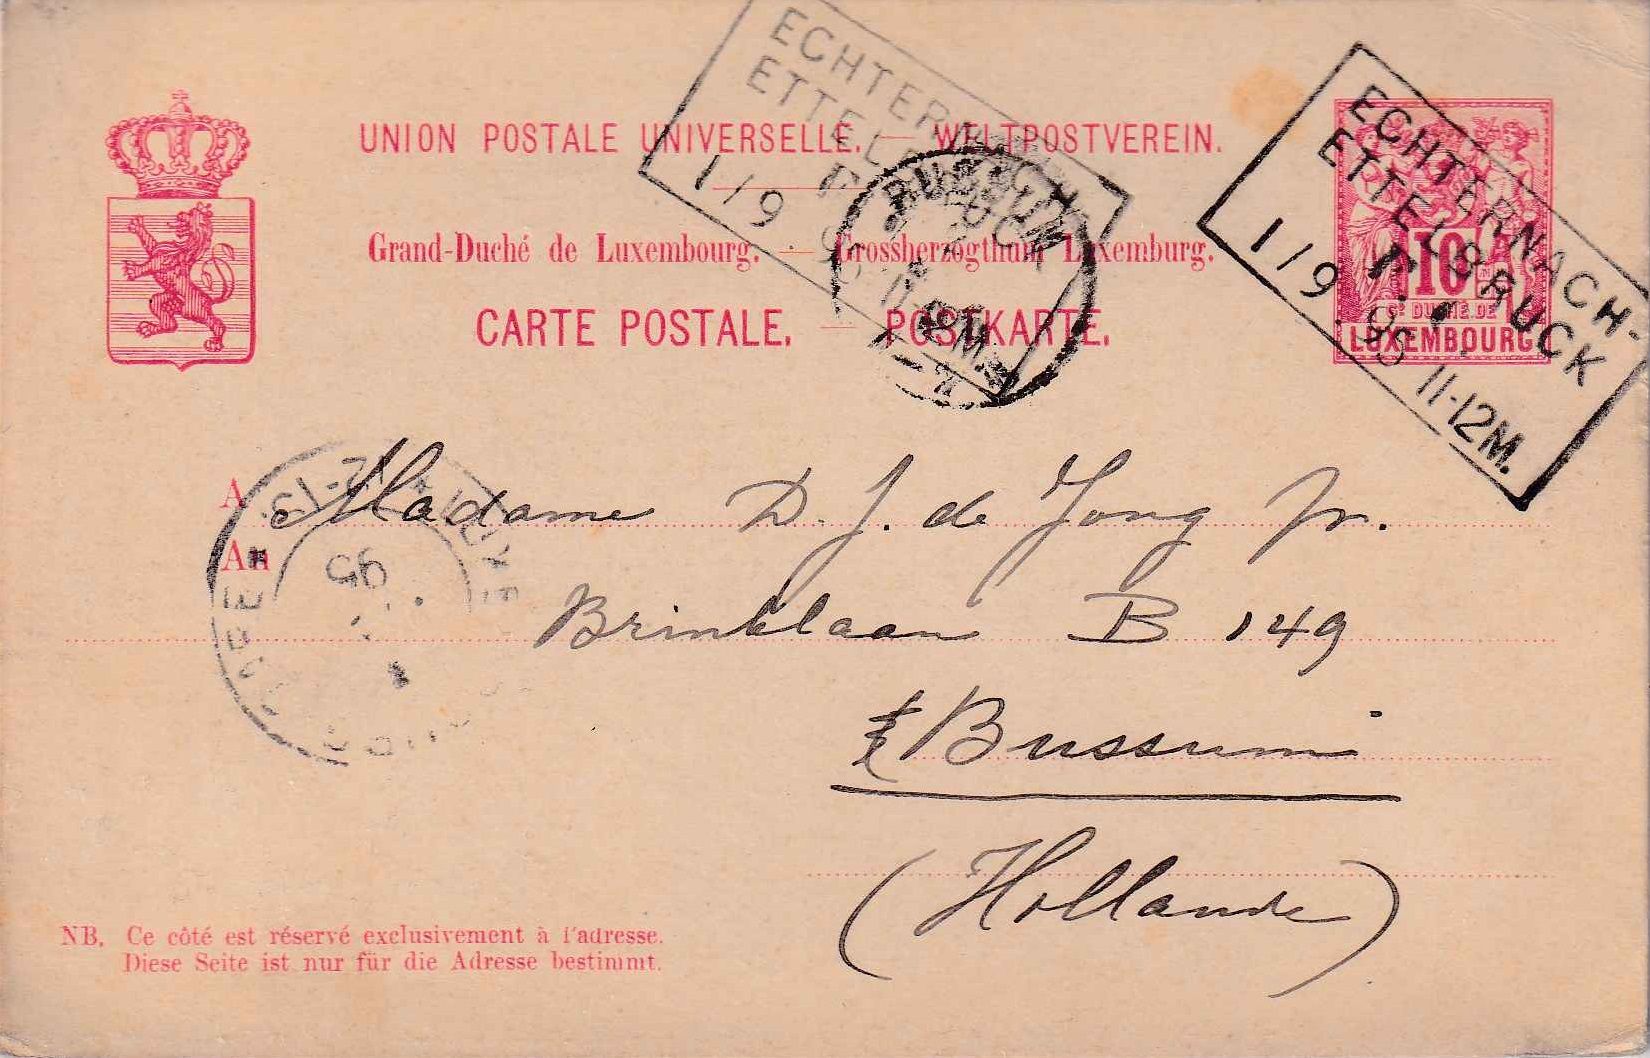 UNION POSTALE UNIVERSELLE. — WELTPOSTVEREIN.
Grand-Duché de Luxembourg. — Grossherzogthum Luxemburg.
CARTE POSTALE. — POSTKARTE.
ECHTERNACH-
ETTELBRUCK
1/9
ECHTERNACH-
ETTELBRUCK
1/9 95 11-12M.
10
GD DUCHÉ DE
LUXEMBOURG
BUSSUM
A
An
Madame D. J. de Jong Jr.
Brinklaan B 149
Bussum
(Hollande)
12-13
95
NB. Ce côté est réservé exclusivement à l'adresse.
Diese Seite ist nur für die Adresse bestimmt.